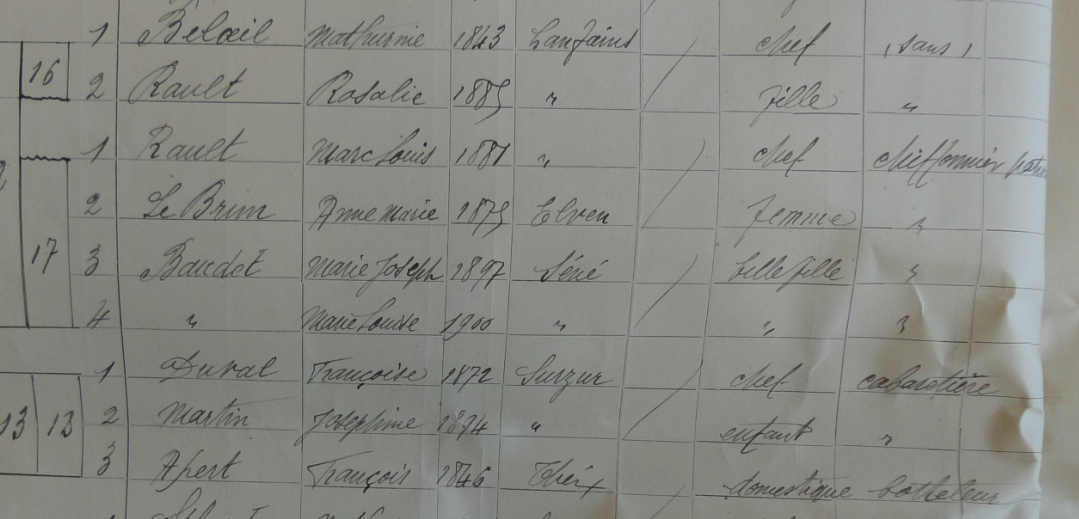 1 Beloeil Mathurine 1843 Lanfains / chef (sans)
16 2 Rault Rosalie 1885 " / fille "
1 Rault Marc Louis 1881 " / chef chiffonnier
2 Le Brun Anne Marie 1875 Elven / femme "
17 3 Baudet Marie Joseph 1897 Séné / belle fille "
4 " Marie Louise 1900 " / " "
1 Duval Françoise 1872 Surzur / chef cabaretière
13 13 2 Martin Joséphine 1894 " / enfant "
3 Apert François 1846 Théix / domestique botteleur